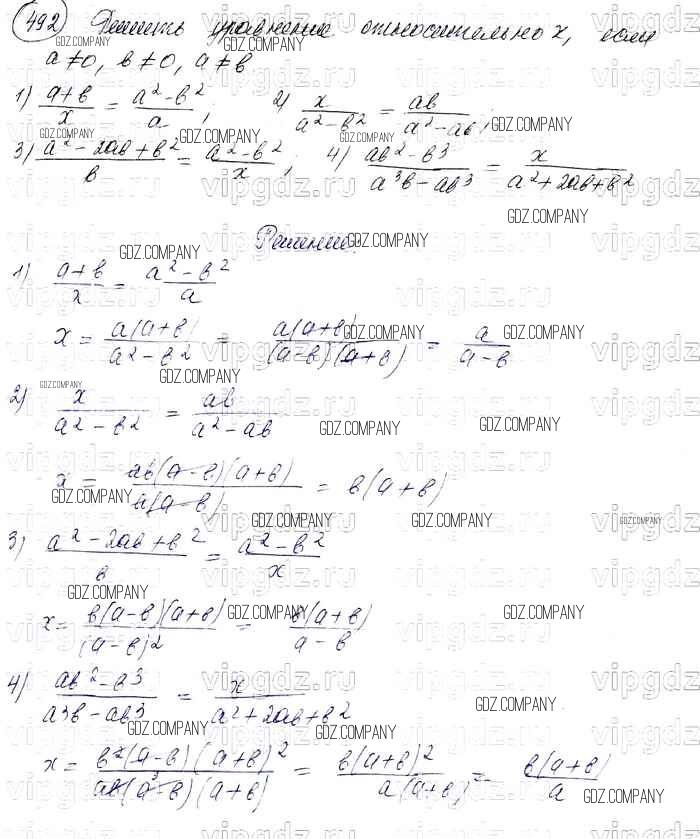 492 Решить уравнение относительно x, если
a≠0, b≠0, a≠b
1) (a+b)/x = (a²-b²)/a; 2) x/(a²-b²) = ab/(a²-ab);
3) (a²-2ab+b²)/b = (a²-b²)/x; 4) (ab²-b³)/(a³b-ab³) = x/(a²+2ab+b²)
Решение:
1) (a+b)/x = (a²-b²)/a
x = a(a+b)/(a²-b²) = a(a+b)/((a-b)(a+b)) = a/(a-b)
2) x/(a²-b²) = ab/(a²-ab)
x = ab(a-b)(a+b)/(a(a-b)) = b(a+b)
3) (a²-2ab+b²)/b = (a²-b²)/x
x = b(a-b)(a+b)/(a-b)² = b(a+b)/(a-b)
4) (ab²-b³)/(a³b-ab³) = x/(a²+2ab+b²)
x = b²(a-b)(a+b)²/(ab(a-b)(a+b)) = b(a+b)²/(a(a+b)) = b(a+b)/a
GDZ.COMPANY
vipgdz.ru